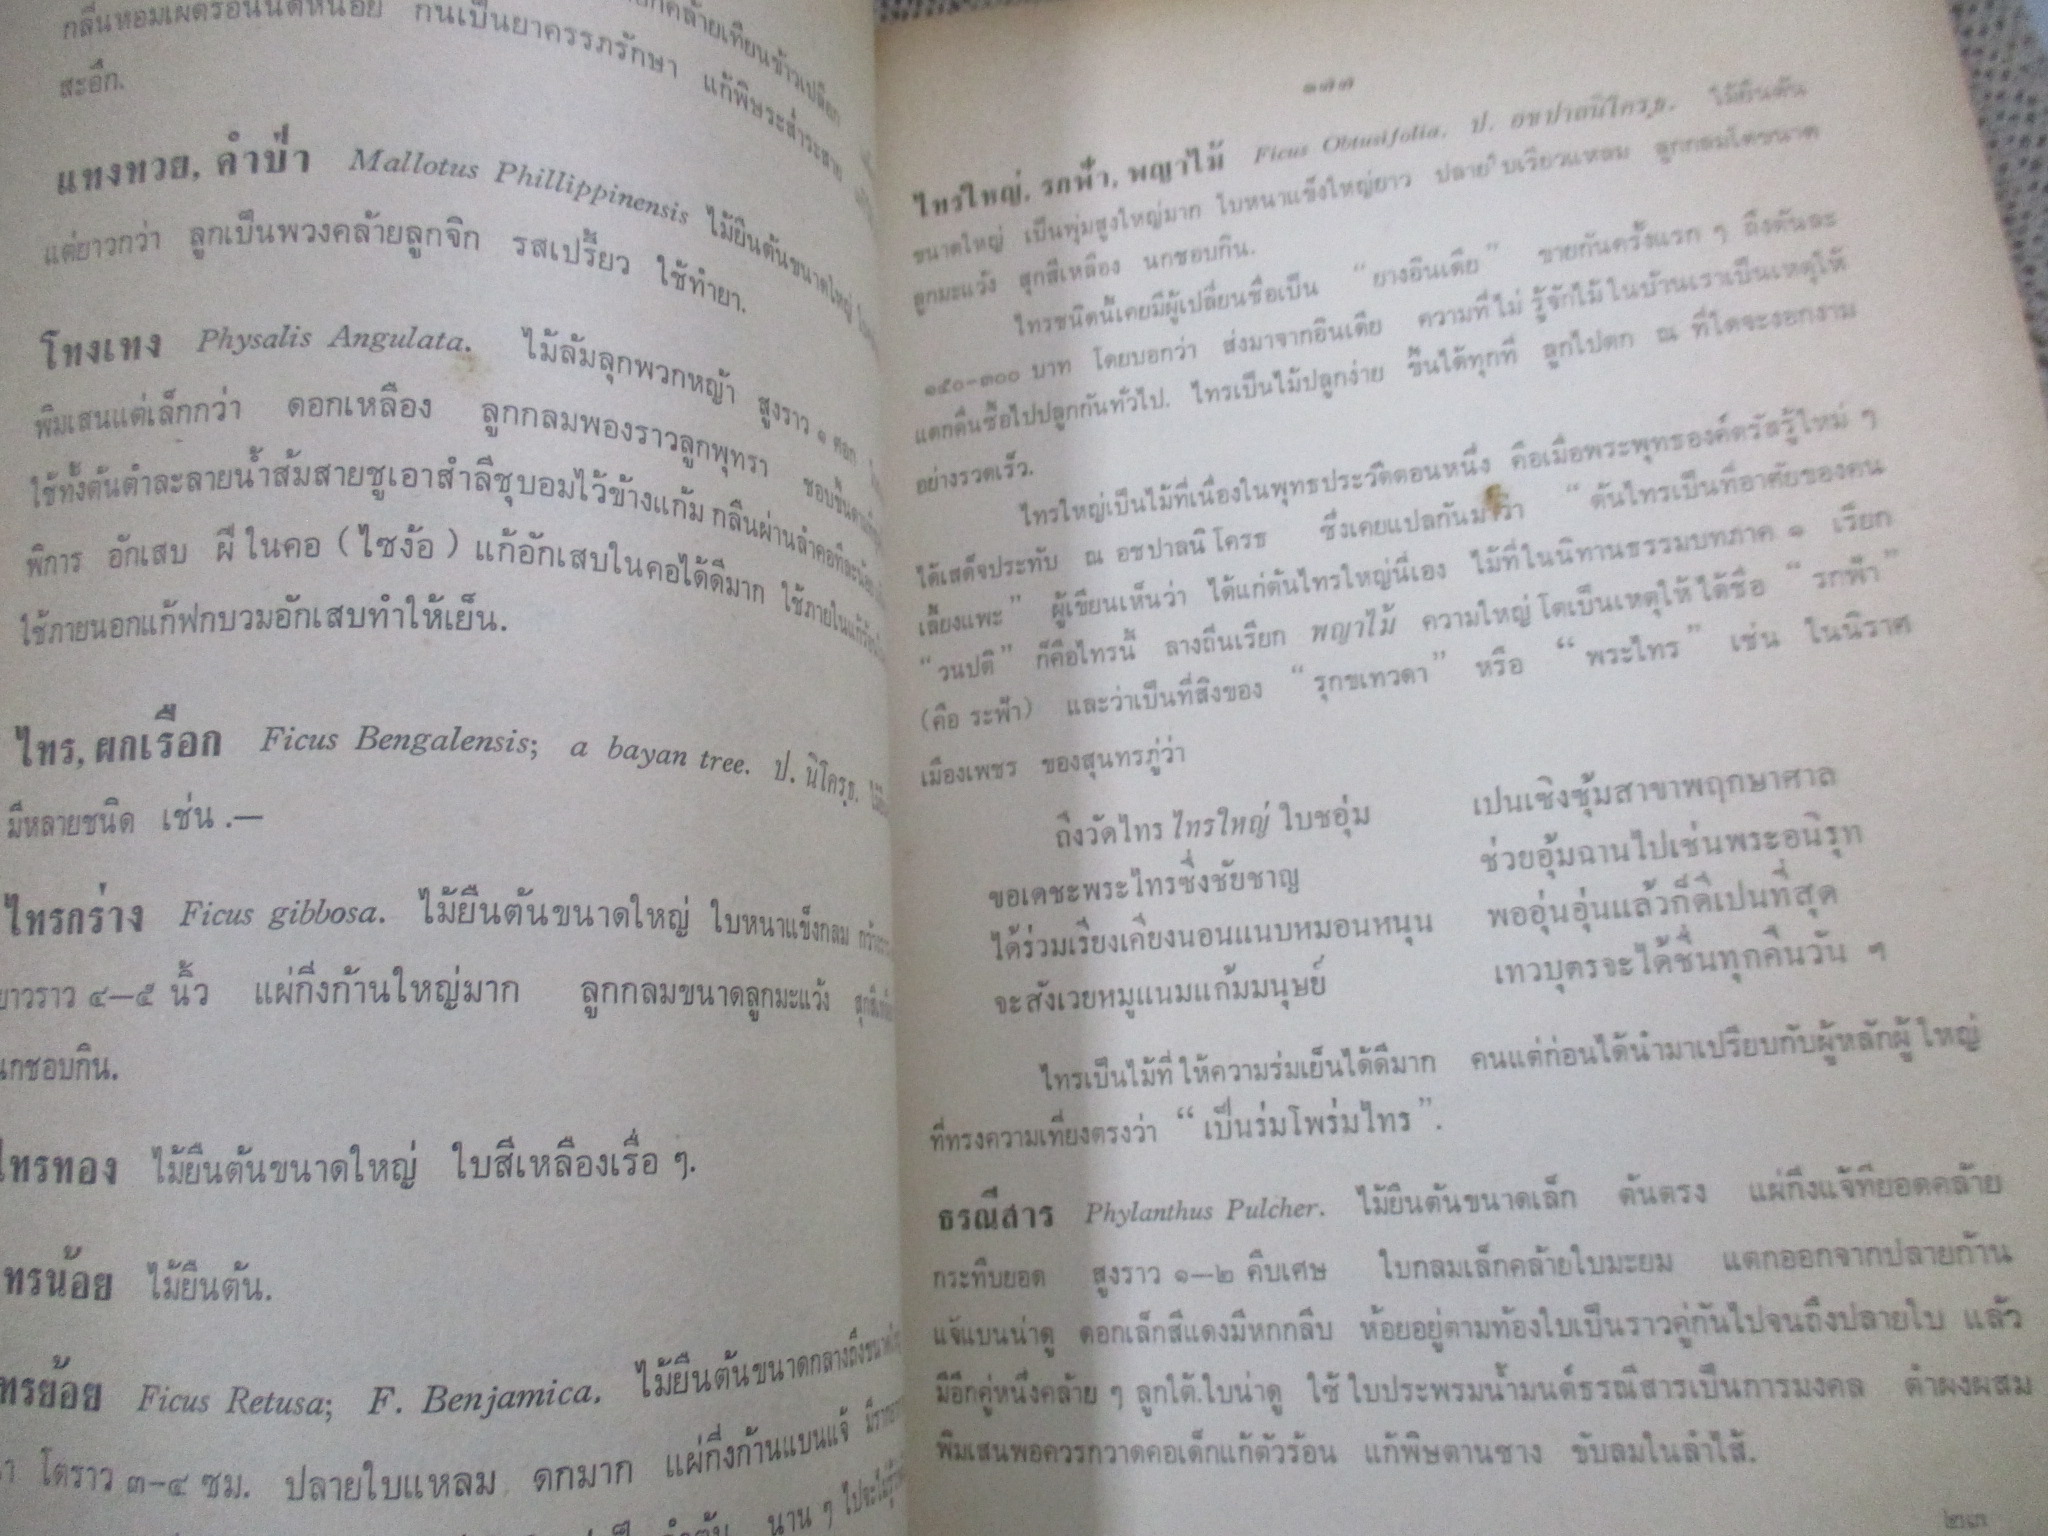 กลิ่นหอมเผ็ดร้อนนิดหน่อย กินเป็นยาครรภรักษา แก้พิษระส่ำระสาย
สะอึก.
แทงทวย, คำป่า Mallotus Phillippinensis ไม้ยืนต้นขนาดใหญ่
แต่ยาวกว่า ลูกเป็นพวงคล้ายลูกจิก รสเปรี้ยว ใช้ทำยา.
โทงเทง Physalis Angulata. ไม้ล้มลุกพวกหญ้า สูงราว ๑ ศอก
พิมเสนแต่เล็กกว่า ดอกเหลือง ลูกกลมพองราวลูกพุทรา
ใช้ทั้งต้นตำละลายน้ำส้มสายชูเอาสำลีชุบอมไว้ข้างแก้ม กลืนผ่านลำคอทีละน้อย
พิการ อักเสบ ฝีในคอ (ไซง้อ) แก้อักเสบในคอได้ดีมาก ใช้ภายในแก้ร้อน
ใช้ภายนอกแก้ฟกบวมอักเสบทำให้เย็น.
ไทร, ผกเรือก Ficus Bengalensis; a bayan tree. ป. นิโครฺธ.
มีหลายชนิด เช่น .—
ไทรกร่าง Ficus gibbosa. ไม้ยืนต้นขนาดใหญ่ ใบหนาแข็งกลม
ยาวราว ๔—๕ นิ้ว แผ่กิ่งก้านใหญ่มาก ลูกกลมขนาดลูกมะแว้ง
นกชอบกิน.
ไทรทอง ไม้ยืนต้นขนาดใหญ่ ใบสีเหลืองเรื่อ ๆ.
ทรน้อย ไม้ยืนต้น.
ทรย้อย Ficus Retusa; F. Benjamica. ไม้ยืนต้นขนาดกลางถึงขนาด
โตราว ๓—๔ ซม. ปลายใบแหลม ดกมาก แผ่กิ่งก้านแบนแจ้
นาน ๆ
๑๗๗
ไทรใหญ่, รกฟ้า, พญาไม้ Ficus Obtusifolia. ป. อชปาลนิโครฺธ. ไม้ยืนต้น
ขนาดใหญ่ เป็นพุ่มสูงใหญ่มาก ใบหนาแข็งใหญ่ยาว ปลายใบเรียวแหลม ลูกกลมโตขนาด
ลูกมะแว้ง สุกสีเหลือง นกชอบกิน.
ไทรชนิดนี้เคยมีผู้เปลี่ยนชื่อเป็น “ยางอินเดีย” ขายกันครั้งแรก ๆ ถึงต้นละ
๑๕๐—๓๐๐ บาท โดยบอกว่า ส่งมาจากอินเดีย ความที่ไม่รู้จักไม้ในบ้านเราเป็นเหตุให้
แตกตื่นซื้อไปปลูกกันทั่วไป. ไทรเป็นไม้ปลูกง่าย ขึ้นได้ทุกที่ ลูกไปตก ณ ที่ใดจะงอกงาม
อย่างรวดเร็ว.
ไทรใหญ่เป็นไม้ที่เนื่องในพุทธประวัติตอนหนึ่ง คือเมื่อพระพุทธองค์ตรัสรู้ใหม่ ๆ
ได้เสด็จประทับ ณ อชปาลนิโครธ ซึ่งเคยแปลกันมาว่า “ต้นไทรเป็นที่อาศัยของคน
เลี้ยงแพะ” ผู้เขียนเห็นว่า ได้แก่ต้นไทรใหญ่นี่เอง ไม้ที่ในนิทานธรรมบทภาค ๑ เรียก
“วนปติ” ก็คือไทรนี้ ลางถิ่นเรียก พญาไม้ ความใหญ่โตเป็นเหตุให้ได้ชื่อ “รกฟ้า”
(คือ ระฟ้า) และว่าเป็นที่สิงของ “รุกขเทวดา” หรือ “พระไทร” เช่น ในนิราศ
เมืองเพชร ของสุนทรภู่ว่า
ถึงวัดไทร ไทรใหญ่ ใบชอุ่ม เปนเชิงซุ้มสาขาพฤกษาศาล
ขอเดชะพระไทรซึ่งชัยชาญ ช่วยอุ้มฉานไปเช่นพระอนิรุท
ได้ร่วมเรียงเคียงนอนแนบหมอนหนุน พออุ่นอุ่นแล้วก็ดีเปนที่สุด
จะสังเวยหมูแนมแก้มมนุษย์ เทวบุตรจะได้ชื่นทุกคืนวัน ๆ
ไทรเป็นไม้ที่ให้ความร่มเย็นได้ดีมาก คนแต่ก่อนได้นำมาเปรียบกับผู้หลักผู้ใหญ่
ที่ทรงความเที่ยงตรงว่า “เป็นร่มโพร่มไทร”.
ธรณีสาร Phylanthus Pulcher. ไม้ยืนต้นขนาดเล็ก ต้นตรง แผ่กิ่งแจ้ที่ยอดคล้าย
กระทืบยอด สูงราว ๑—๒ คืบเศษ ใบกลมเล็กคล้ายใบมะยม แตกออกจากปลายก้าน
แจ้แบนน่าดู ดอกเล็กสีแดงมีหกกลีบ ห้อยอยู่ตามท้องใบเป็นราวคู่กันไปจนถึงปลายใบ แล้ว
มีอีกคู่หนึ่งคล้าย ๆ ลูกใต้ใบน่าดู ใช้ใบประพรมน้ำมนต์ธรณีสารเป็นการมงคล ตำผงผสม
พิมเสนพอควรกวาดคอเด็กแก้ตัวร้อน แก้พิษตานซาง ขับลมในลำไส้.